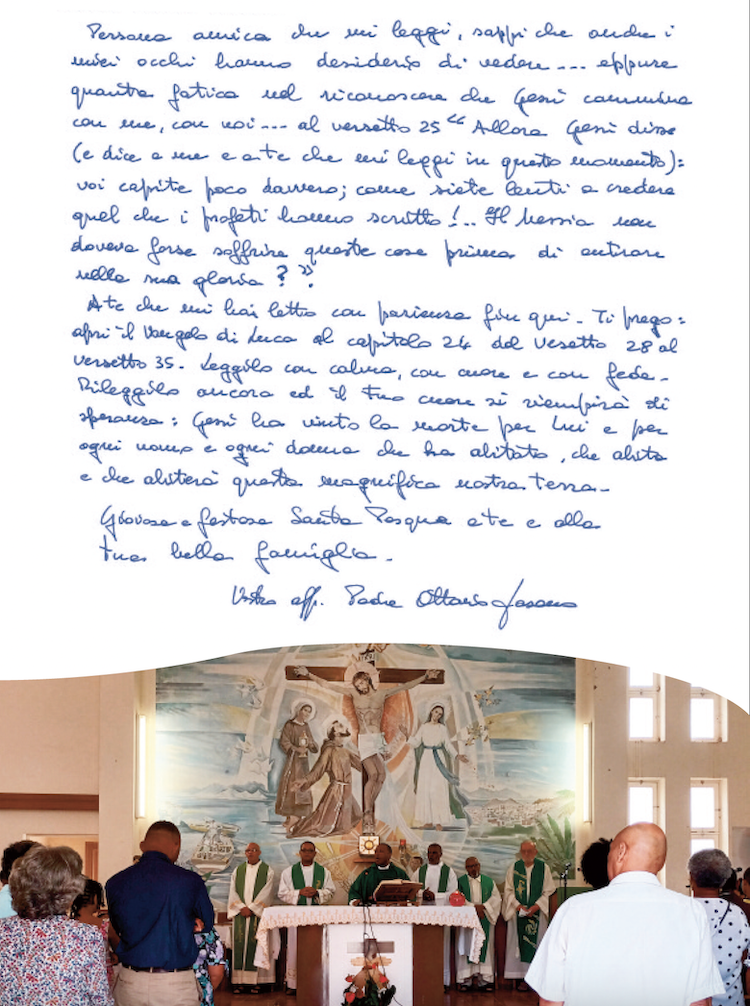 Persona amica che mi leggi, sappi che anche i
miei occhi hanno desiderio di vedere --- eppure
quanta fatica nel riconoscere che Gesù cammina
con me, con voi --- al versetto 25 “Allora Gesù disse
(e dice a me e a te che mi leggi in questo momento):
voi capite poco davvero; come siete lenti a credere
quel che i profeti hanno scritto!.. Il Messia non
doveva forse soffrire queste cose prima di entrare
nella sua gloria?”.
A te che mi hai letto con pazienza fin qui. Ti prego:
apri il Vangelo di Luca al capitolo 24 dal versetto 28 al
versetto 35. Leggilo con calma, con cuore e con fede.
Rileggilo ancora ed il tuo cuore si riempirà di
speranza: Gesù ha vinto la morte per Lui e per
ogni uomo e ogni donna che ha abitato, che abita
e che abiterà questa magnifica nostra terra.
Gioiosa e festosa Santa Pasqua a te e alla
tua bella famiglia.
Vostro aff. Padre Ottavio Fasano